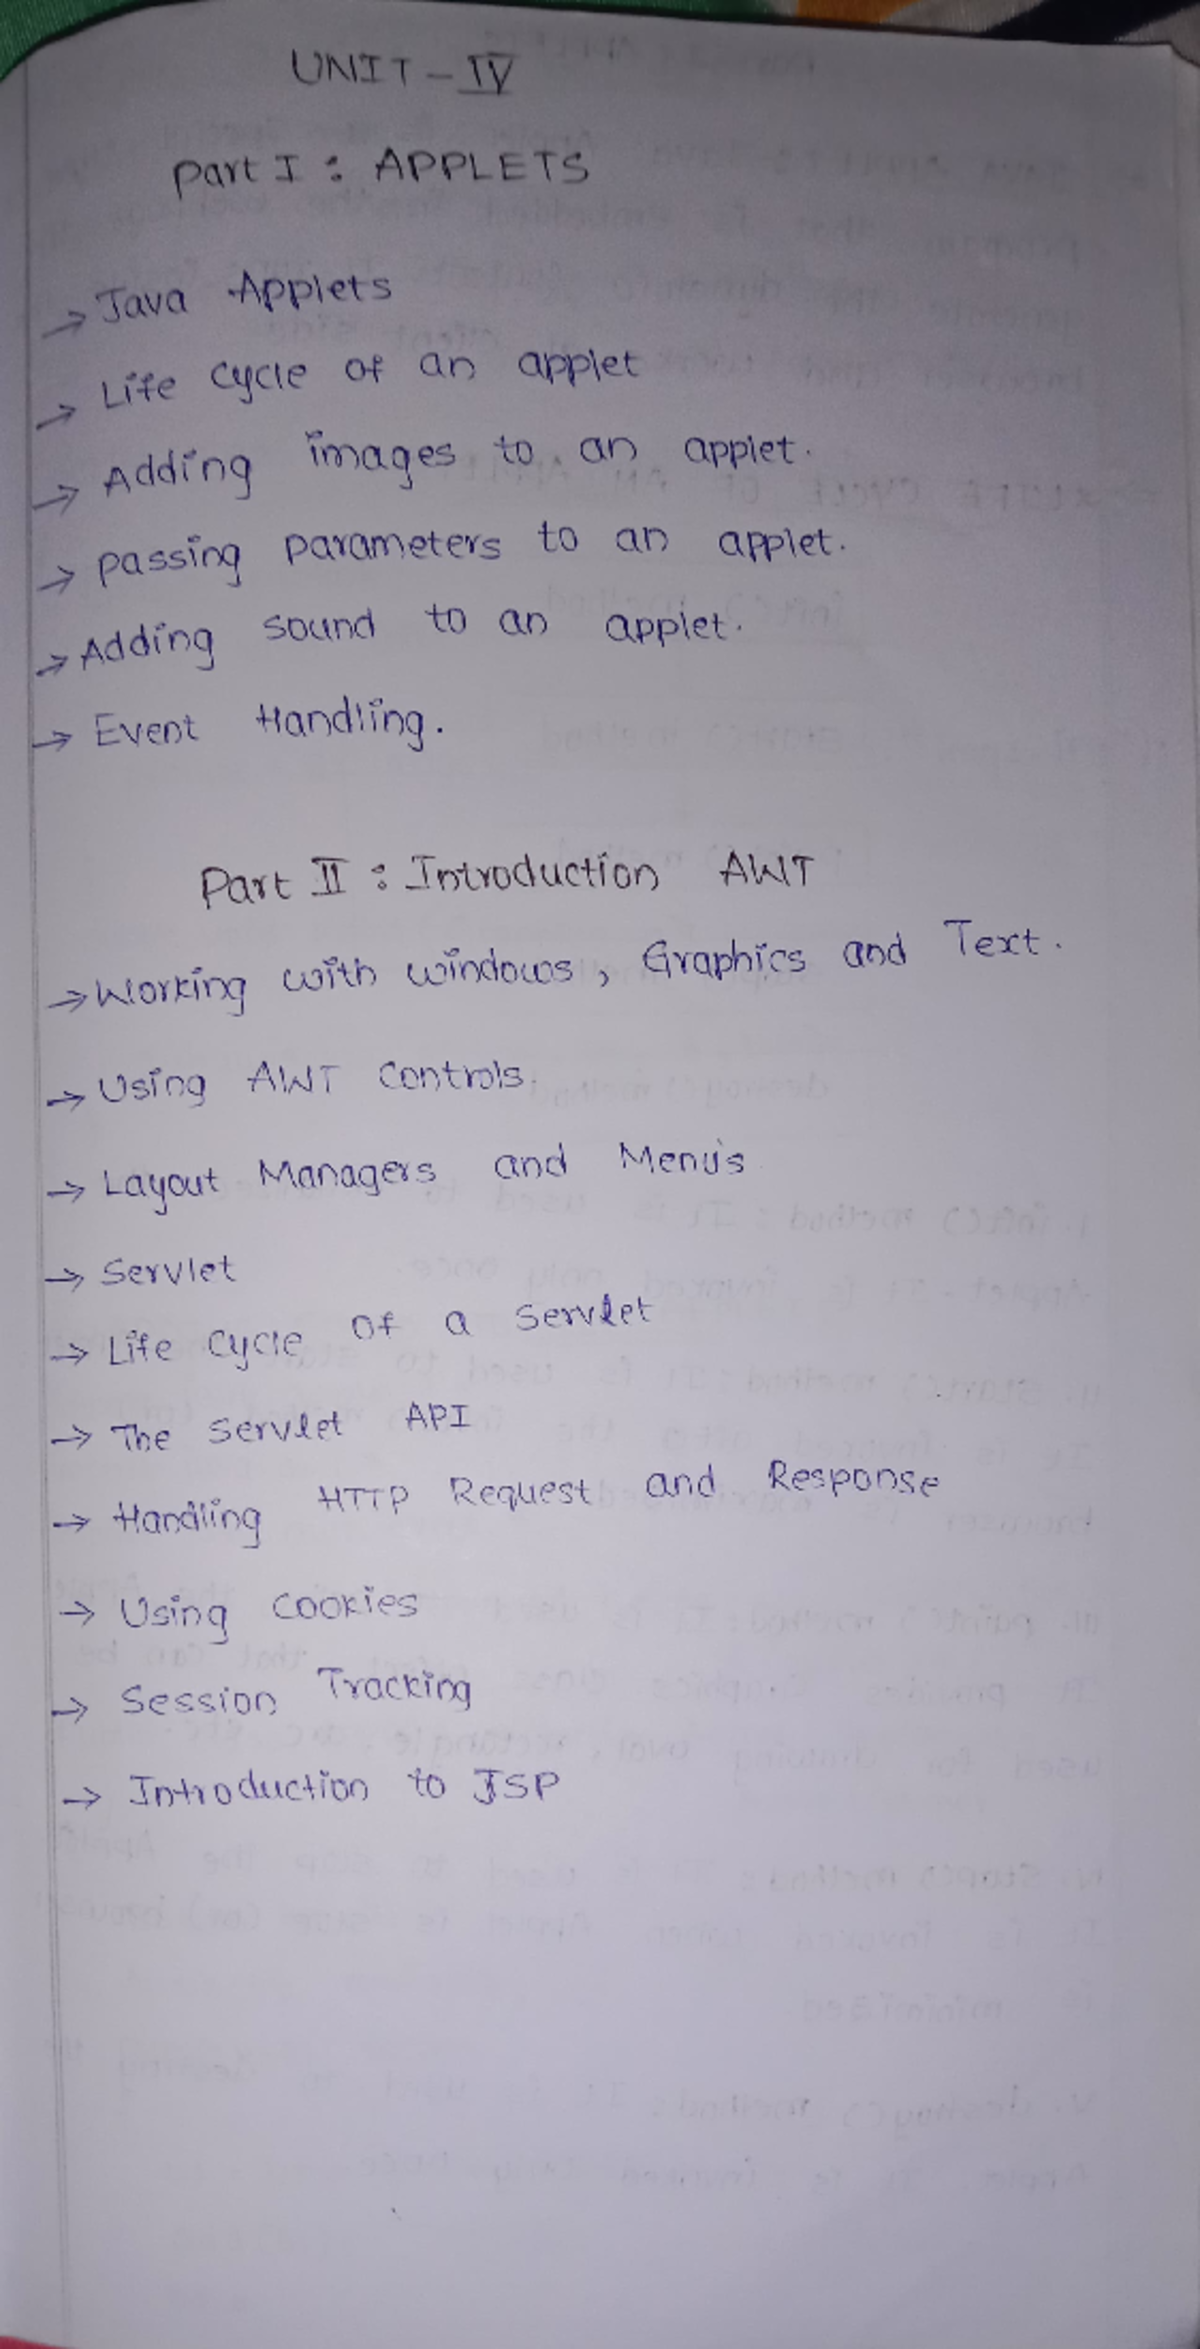 UNIT - IV
Part I : APPLETS
→ Java Applets
→ Life cycle of an applet
→ Adding images to an applet.
→ passing parameters to an applet.
→ Adding sound to an applet.
→ Event Handling.
Part II : Introduction AWT
→ Working with windows, Graphics and Text.
→ Using AWT controls.
→ Layout Managers and Menu's
→ Servlet
→ Life cycle of a servlet
→ The servlet API
→ Handling HTTP Request and Response
→ Using cookies
→ Session Tracking
→ Introduction to JSP